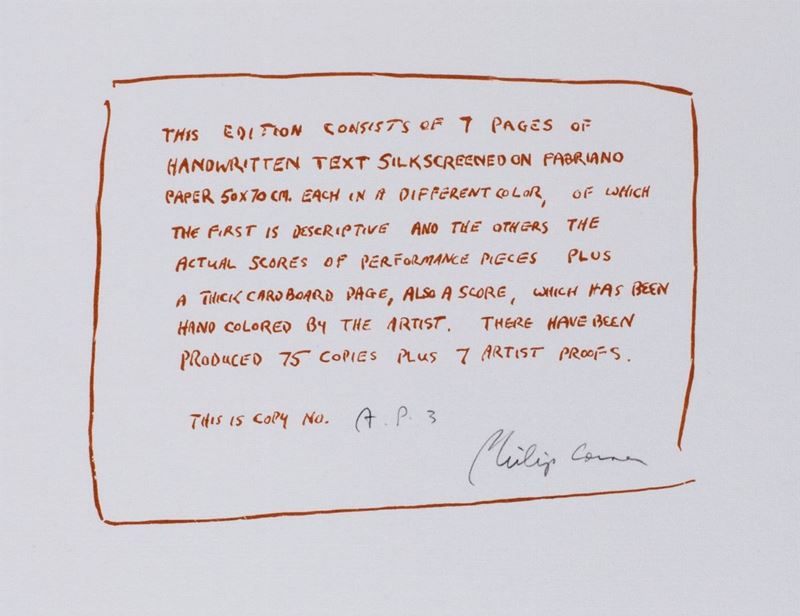 THIS EDITION CONSISTS OF 7 PAGES OF
HANDWRITTEN TEXT SILKSCREENED ON FABRIANO
PAPER 50X70 CM. EACH IN A DIFFERENT COLOR, OF WHICH
THE FIRST IS DESCRIPTIVE AND THE OTHERS THE
ACTUAL SCORES OF PERFORMANCE PIECES PLUS
A THICK CARDBOARD PAGE, ALSO A SCORE, WHICH HAS BEEN
HAND COLORED BY THE ARTIST. THERE HAVE BEEN
PRODUCED 75 COPIES PLUS 7 ARTIST PROOFS.
THIS IS COPY NO. A.P. 3
Philip Corner